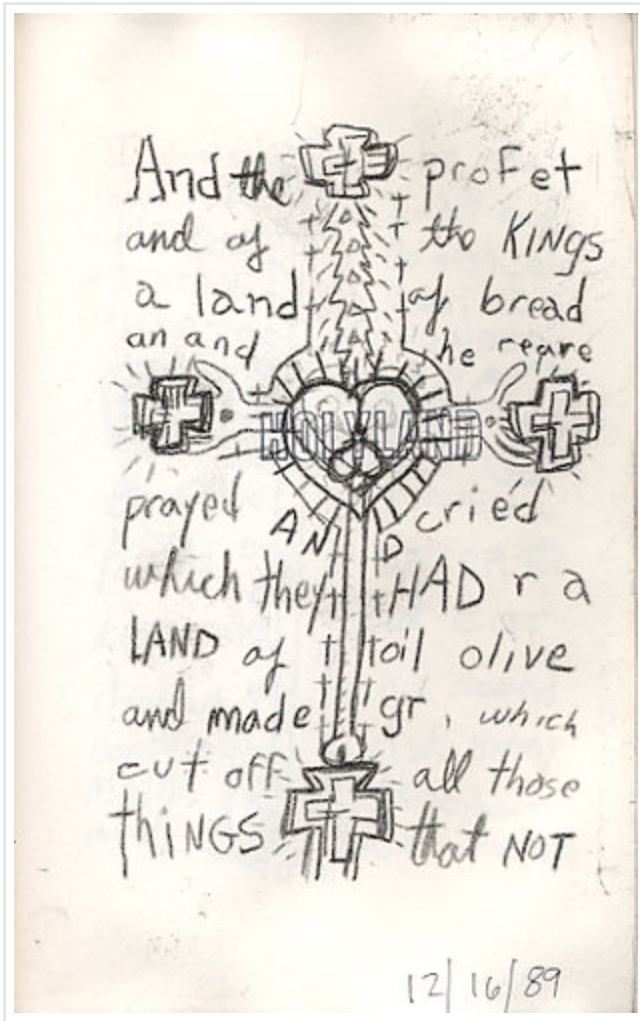 And the profet
and of the KINGS
a land of bread
an and he repre
HOLYLAND
prayed AND cried
which they HAD r a
LAND of toil olive
and made gr, which
cut off all those
thiNGS that NOT
12/16/89